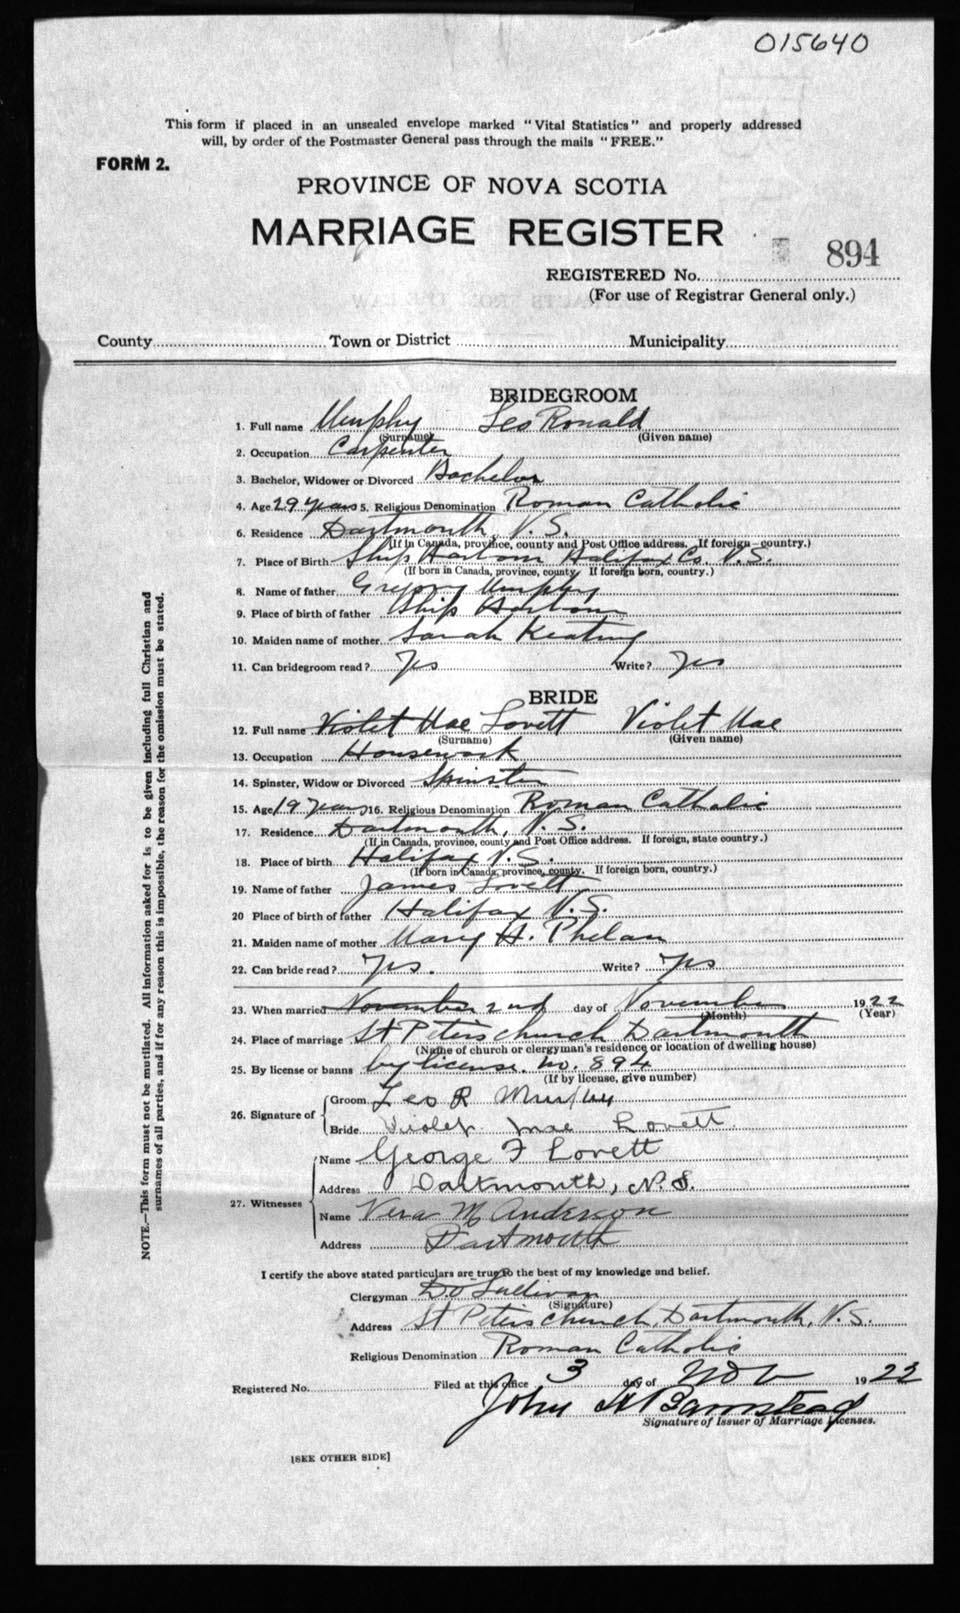 015640
This form if placed in an unsealed envelope marked "Vital Statistics" and properly addressed
will, by order of the Postmaster General pass through the mails "FREE."
FORM 2.
PROVINCE OF NOVA SCOTIA
MARRIAGE REGISTER
894
REGISTERED No.
(For use of Registrar General only.)
County Town or District Municipality
BRIDEGROOM
1. Full name Murphy Leo Ronald
(Surname) (Given name)
2. Occupation Carpenter
3. Bachelor, Widower or Divorced Bachelor
4. Age 29 years 5. Religious Denomination Roman Catholic
6. Residence Dartmouth, N.S.
(If in Canada, province, county and Post Office address. If foreign—country.)
7. Place of Birth Ship Harbour Halifax Co. N.S.
(If born in Canada, province, county. If foreign born, country.)
8. Name of father Gregory Murphy
9. Place of birth of father Ship Harbour
10. Maiden name of mother Sarah Keating
11. Can bridegroom read? Yes Write? Yes
BRIDE
12. Full name Violet Mae Lovett Violet Mae
(Surname) (Given name)
13. Occupation Housework
14. Spinster, Widow or Divorced Spinster
15. Age 19 years 16. Religious Denomination Roman Catholic
17. Residence Dartmouth, N.S.
(If in Canada, province, county and Post Office address. If foreign, state country.)
18. Place of birth Halifax N.S.
(If born in Canada, province, county. If foreign born, country.)
19. Name of father James Lovett
20 Place of birth of father Halifax N.S.
21. Maiden name of mother Mary H. Phelan
22. Can bride read? Yes. Write? Yes
23. When married November 2nd day of November 1922
(Month) (Year)
24. Place of marriage St Peters church Dartmouth
(Name of church or clergyman's residence or location of dwelling house)
25. By license or banns by license. no. 894
(If by license, give number)
26. Signature of Groom Leo R Murphy
Bride Violet Mae Lovett
27. Witnesses Name George F Lovett
Address Dartmouth, N.S.
Name Vera M Anderson
Address Dartmouth
I certify the above stated particulars are true to the best of my knowledge and belief.
Clergyman D O Sullivan
(Signature)
Address St Peters church, Dartmouth, N.S.
Religious Denomination Roman Catholic
Registered No. Filed at this office 3 day of Nov 1922
John H Barnstead
Signature of Issuer of Marriage Licenses.
[SEE OTHER SIDE]
NOTE.—This form must not be mutilated. All information asked for is to be given including full Christian and
surnames of all parties, and if for any reason this is impossible, the reason for the omission must be stated.